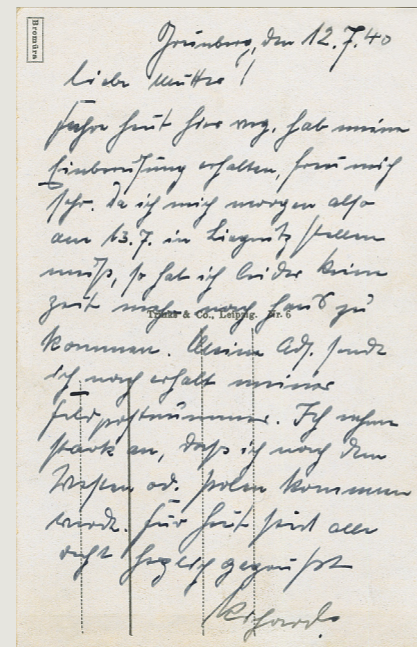 Bromüra
Grünberg, den 12.7.40
Liebe Mutter!
Fahre heut hier weg, hab meine
Einberufung erhalten, freu mich
sehr. Da ich mich morgen also
am 13.7. in Liegnitz stellen
muß, so hab ich leider keine
Zeit mehr nach Haus zu
Trinks & Co., Leipzig. Nr. 6
kommen. Meine Adr. sende
ich nach erhalt meiner
Feldpostnummer. Ich nehme
stark an, daß ich nach dem
Westen od. Polen kommen
werde. Für heut seid alle
recht herzlich gegrüßt
Richard